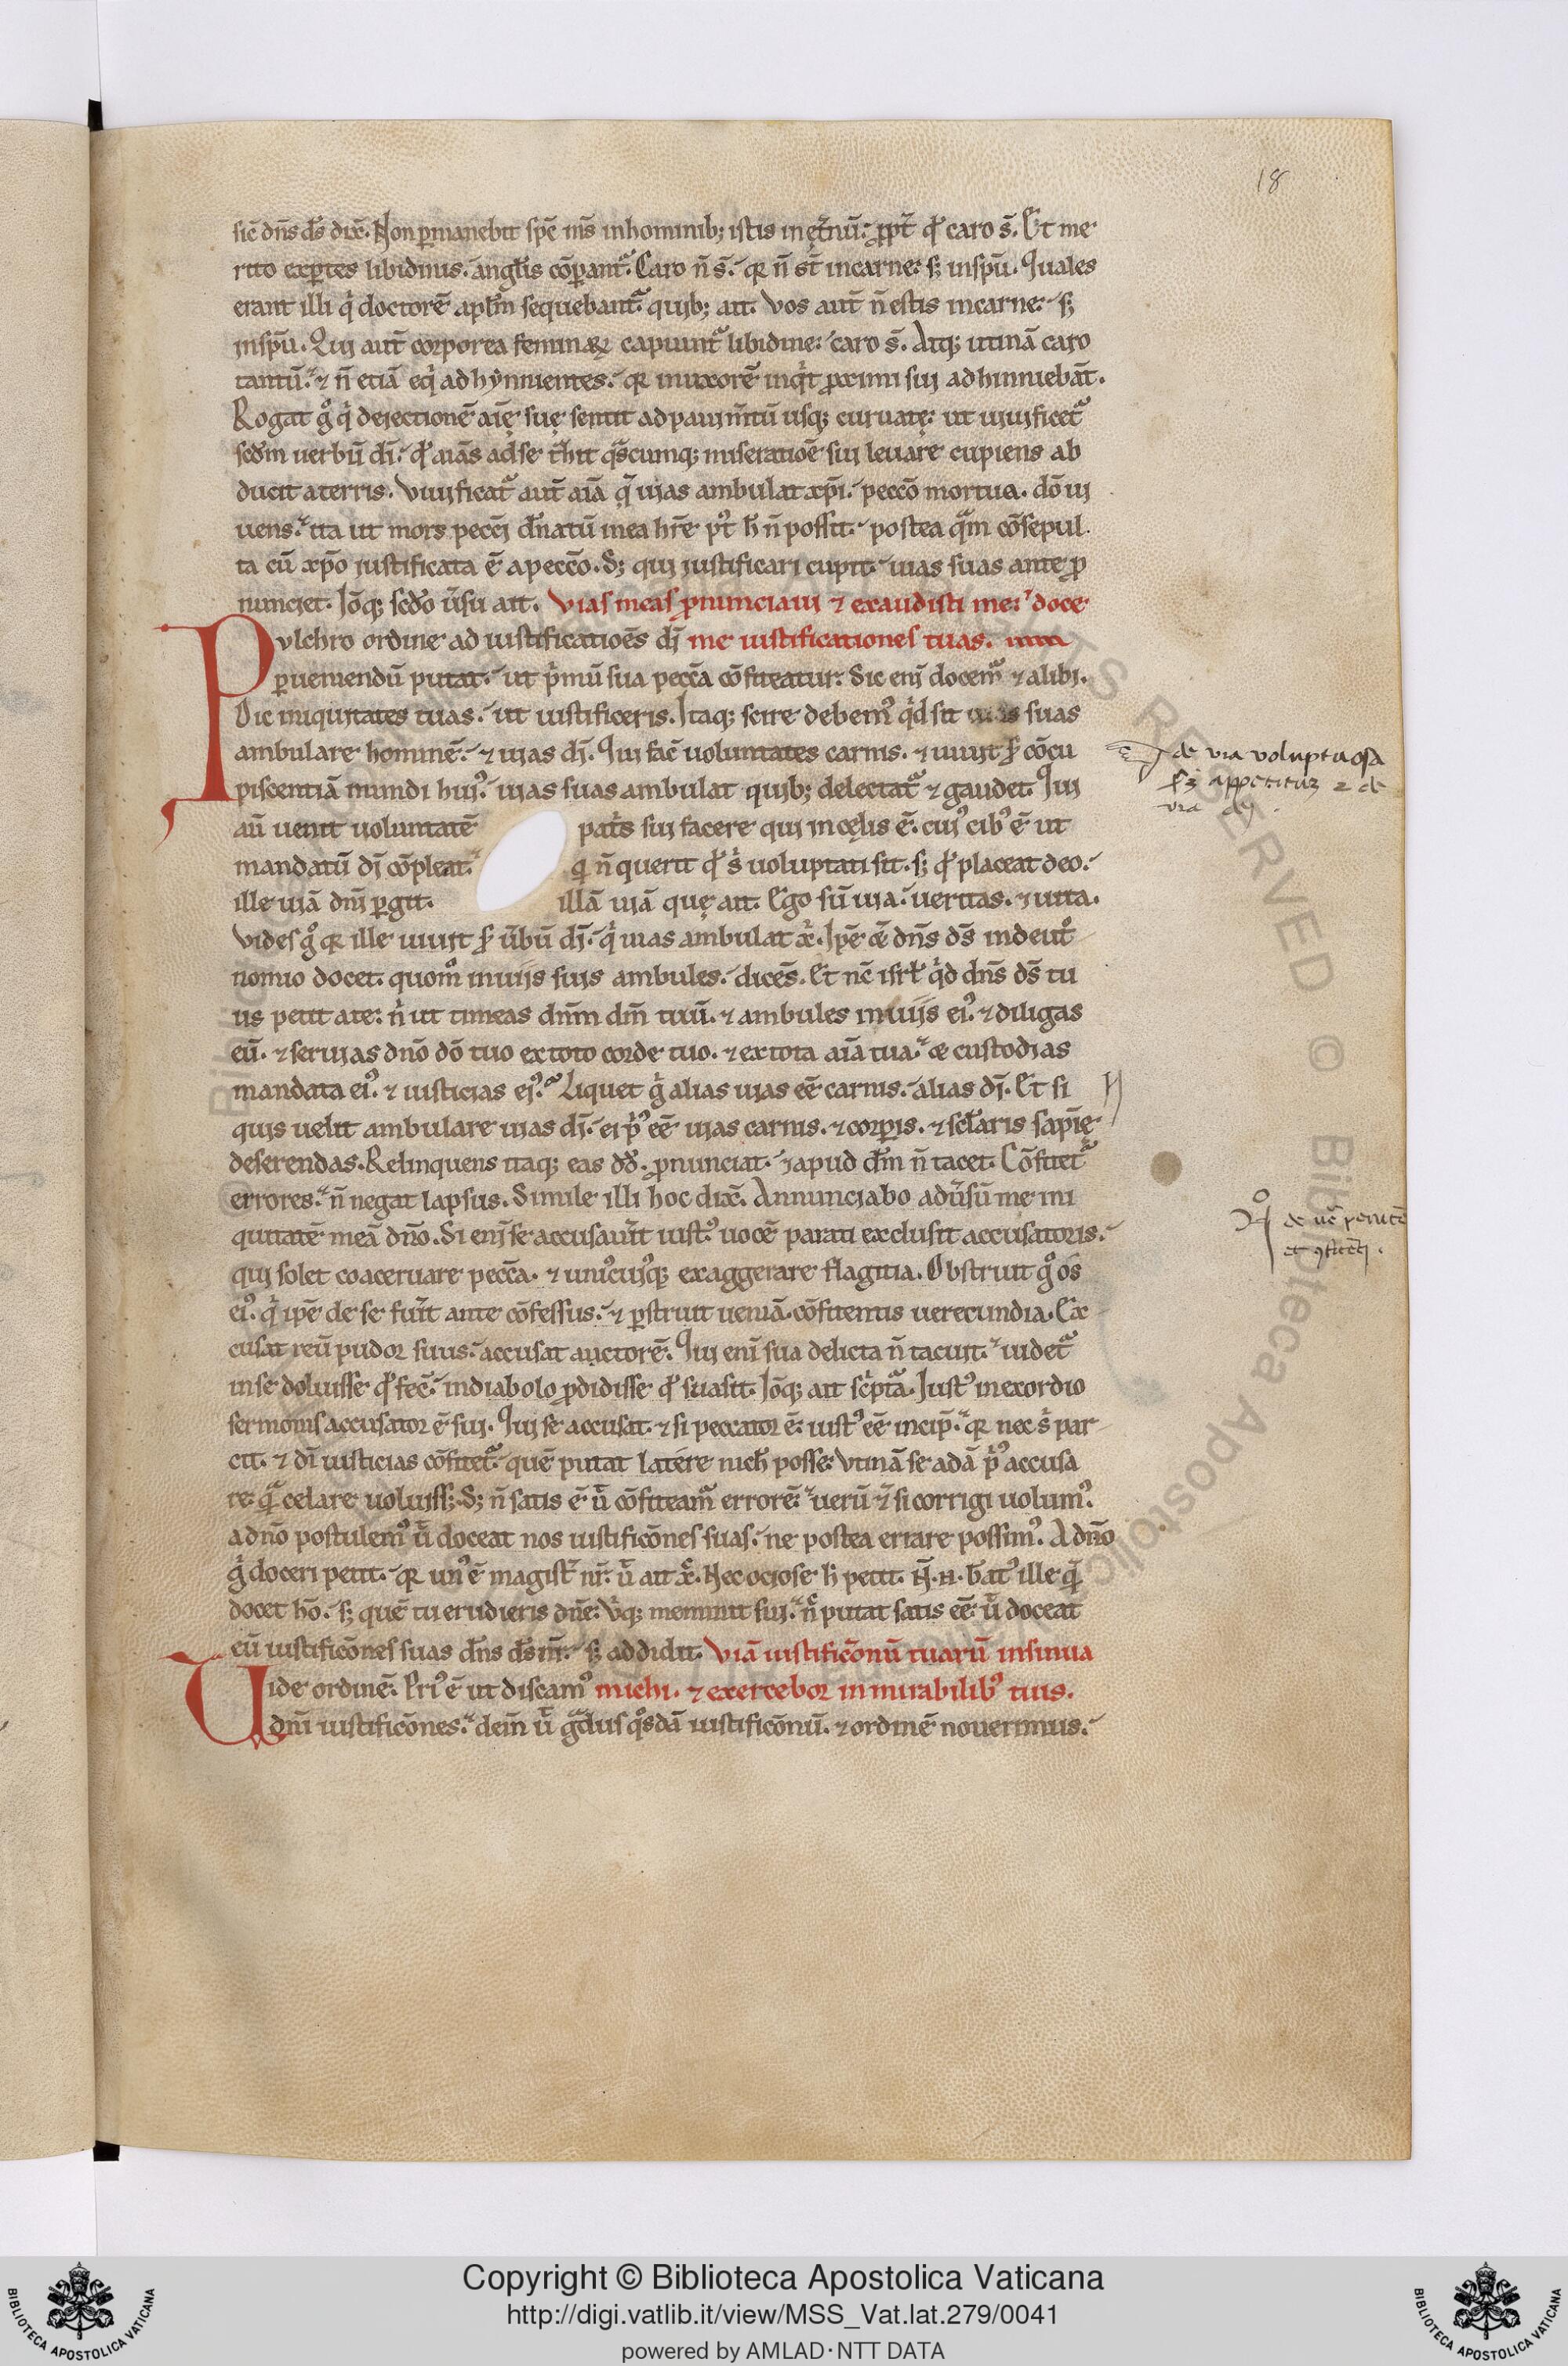 18
sic̄ dn̄s ds̄ dix̄. Non ꝑmanebit spc̄ ms̄ in hominib; istis in ęt̄nū. ꝓpt̄ qđ caro s̄. Et me
rito exꝑtes libidinis. anglis cōparant᷑. Caro n̄ s̄. qꝛ n̄ st̄ in carne: s; in spū. Quales
erant illi qi doctorē aplm̄ sequebant᷑ quib; ait. Vos aut̄ n̄ estis in carne. s;
in spū. Qui aut̄ corporea feminaꝝ capiunt᷑ libidine: caro s̄. Atq; utinā caro
tantū. ⁊ n̄ etiā eq̇ ad hẏnnientes. qꝛ in uxorē inq̇t proximi sui adhinniebāt.
Rogat g̊ q̇ deiectionē aīę suę sentit ad pauim̄tū usq; curuatę: ut uiuificet᷑
scdm̄ uerbū dī. qđ aīas ad se t̄hit qᷓscumq; miseratioē sui leuare cupiens ab
ducit a terris. Viuificat᷑ aut̄ aīa q̄ uias ambulat xp̄i. peccō mortua. dō ui
uens. ita ut mors peccī dn̄atū in ea hr̄e pt̄ h̄ n̄ possit. postea qᷓm cōsepul
ta cū xp̄o iustificata ē a peccō. S; qui iustificari cupit. uias suas ante ꝓ
nunciet. Iō̄q; scdō ūsu ait. Vias meas ꝓnunciaui ⁊ exaudisti me: doce
Pulchro ordine ad iustificatioēs dī me iustificationes tuas.
ꝑueniendū putat. ut pͥmū sua peccā cōfiteatur. Sic enī docem᷑ ⁊ alibi.
Dic iniquitates tuas. ut iustificeris. Itaq; scire debem᷒ qͥd sit uias suas
ambulare hominē. ⁊ uias dī. Qui fac̄ uoluntates carnis. ⁊ uiuit scđ cōcu
piscentiā mundi hui᷒. uias suas ambulat quib; delectat᷑ ⁊ gaudet. Qui
aū uenit uoluntatē patͥs sui facere qui in cęlis ē. cui᷒ cib᷒ ē ut
mandatū dī cōpleat. qi n̄ querit qđ sͥ uoluptati sit. s; qđ placeat deo.
ille uiā dn̄i ꝑgit. illā uiā quę ait. Ego sū uia. ueritas. ⁊ uita.
Vides g̊ qꝛ ille uiuit scđ ūbū dī. qͥ uias ambulat xͥ. Ipē ē dn̄s ds̄ in deut̊
nomio docet. quom̊ in uiis suis ambules. dicēs. Et nc̄ isrl̄ qͥd dn̄s ds̄ tu
us petit a te: nͥ ut timeas dn̄m dm̄ tuū. ⁊ ambules in uiis ei᷒. ⁊ diligas
eū. ⁊ seruias dn̄o dō tuo ex toto corde tuo. ⁊ ex tota aīa tua. & custodias
mandata ei᷒. ⁊ iusticias ei᷒. Liquet g̊ alias uias eē carnis. alias dī. Et si
quis uelit ambulare uias dī. ei pͥ᷒ eē uias carnis. ⁊ corꝑis. ⁊ sclaris sapīę
deserendas. Relinquens itaq; eas dđ. ꝓnunciat. ⁊ apud dm̄ n̄ tacet. Cōfitet᷑
errores. n̄ negat lapsus. Simile illi hoc dix̄. Annunciabo adūsū me ini
quitatē meā dn̄o. Si enī se accusauīt iust᷒ uocē parati exclusit accusatoris.
qui solet coaceruare peccā. ⁊ uni᷒cui᷒q; exaggerare flagitia. Obstruit g̊ os
ei᷒. qͥ ipē de se fuīt ante cōfessus. ⁊ ꝑstruit ueniā. cōfitentis uerecundia. Ex
cusat reū pudor suus. accusat auctorē. Qui enī sua delicta n̄ tacuit. uidet᷑
in se doluisse qđ fec̄. in diabolo ꝓdidisse qđ suasit. Iō̄q; ait scͥptᷓa. Iust᷒ in exordio
sermonis accusator ē sui. Qui se accusat. ⁊ si peccator ē: iust᷒ eē incip̄. qꝛ nec sͥ par
cit. ⁊ dī iusticias cōfitet᷑. quē putat latere nich̄ posse. Vtinā se adā pͥ᷒ accusa
re qᷓ celare uoluiss;. S; n̄ satis ē ū cōfiteam᷑ errorē. uerū ⁊ si corrigi uolum᷒.
a dn̄o postulem᷒ ū doceat nos iustificōnes suas. ne postea errare possim᷒. A dn̄o
g̊ doceri petit. qꝛ un᷒ ē magist̄ nr̄. ū ait xͥ. Nec ociose h̄ petit.
docet hō. s; quē tu erudieris dn̄e. meminit sui. n̄ putat satis eē: ū doceat
eū iustificōnes suas dn̄s ds̄ nr̄. s; addidit. Viā iustificōnū tuarū insinua
Vide ordinē. Pri᷒ ē ut discam᷒ michi. ⁊ exercebor in mirabilib᷒ tuis.
dn̄i iustificōnes. dein̄ ū gᷓdus qͦsdā iustificōnū. ⁊ ordinē nouerimus.
de via voluptuosa
scꝫ appetituꝫ ⁊ de
via dei
de vc̄ penitē
et ꝯfitētj
Copyright © Biblioteca Apostolica Vaticana
http://digi.vatlib.it/view/MSS_Vat.lat.279/0041
powered by AMLAD·NTT DATA
BIBLIOTECA APOSTOLICA VATICANA
BIBLIOTECA APOSTOLICA VATICANA